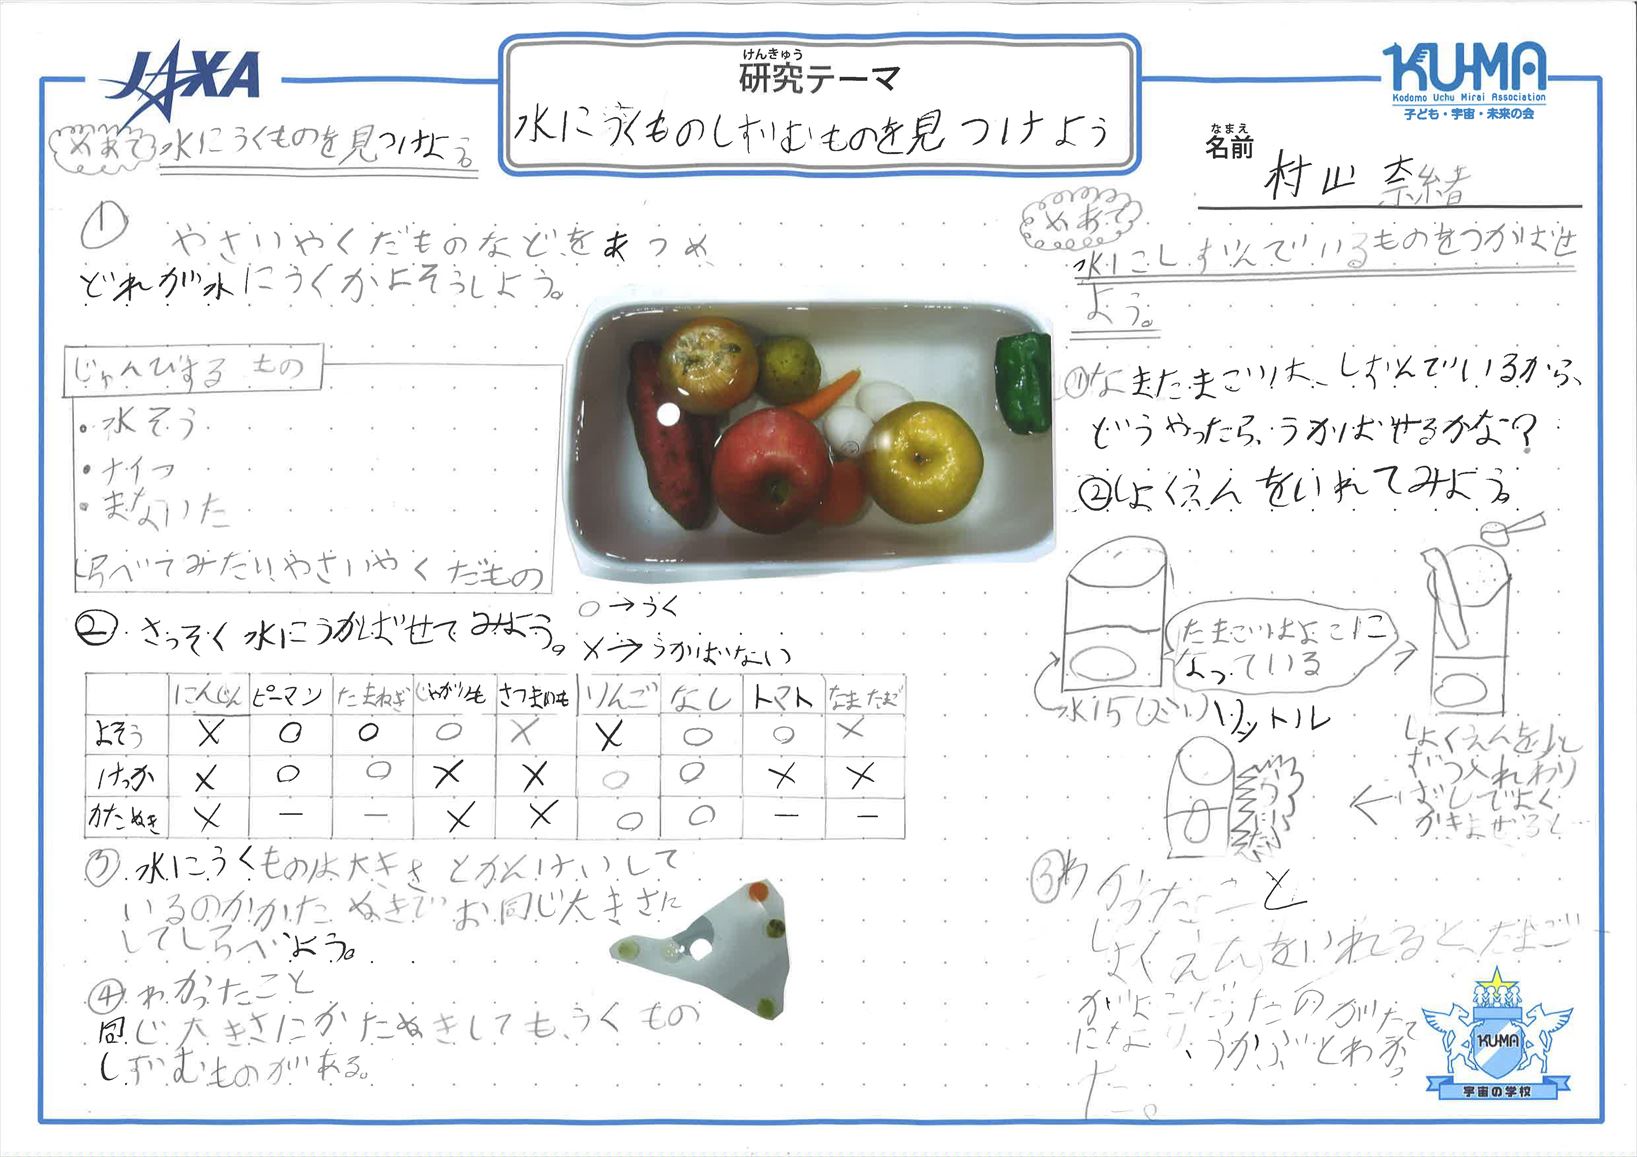 JAXA
けんきゅう
研究テーマ
水にうくものしずむものを見つけよう
KU-MA
Kodomo Uchu Mirai Association
子ども・宇宙・未来の会
なまえ
名前
村山 奈緒
めあて 水にうくものを見つけよう。
① やさいやくだものなどをあつめ
どれが水にうくかよそうしよう。
じゅんびするもの
・水そう
・ナイフ
・まないた
調べてみたいやさいやくだもの
② さっそく水にうかばせてみよう。
○→うく
×→うかばない
にんじん ピーマン たまねぎ じゃがいも さつまいも りんご なし トマト なまたまご
よそう × ○ ○ ○ × × ○ ○ ×
けっか × ○ ○ × × ○ ○ × ×
かたぬき × ー ー × × ○ ○ ー ー
③ 水にうくものは大きさとかんけいして
いるのかかたぬきでお同じ大きさに
してしらべよう。
④ わかったこと
同じ大きさにかたぬきしても、うくもの
しずむものがある。
めあて
水にしずんでいるものをうかばせ
よう。
①なまたまごは、しずんでいるから、
どうやったら、うかばせるかな?
②しょくえんをいれてみよう。
たまごはよこに
なっている
水1.5 リットル
しょくえんを少し
ずつ入れわり
ばしでよく
かきまぜると…
③わかったこと
しょくえんをいれると、たまご
がよこだったのがたて
になり、うかぶとわかっ
た。
KU-MA
宇宙の学校